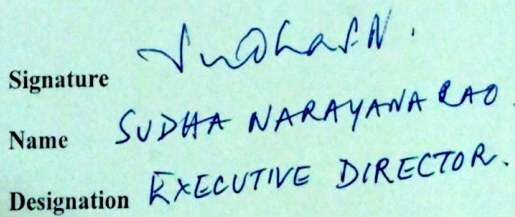 Signature Sudha.N.
Name SUDHA NARAYANA RAO
Designation EXECUTIVE DIRECTOR.